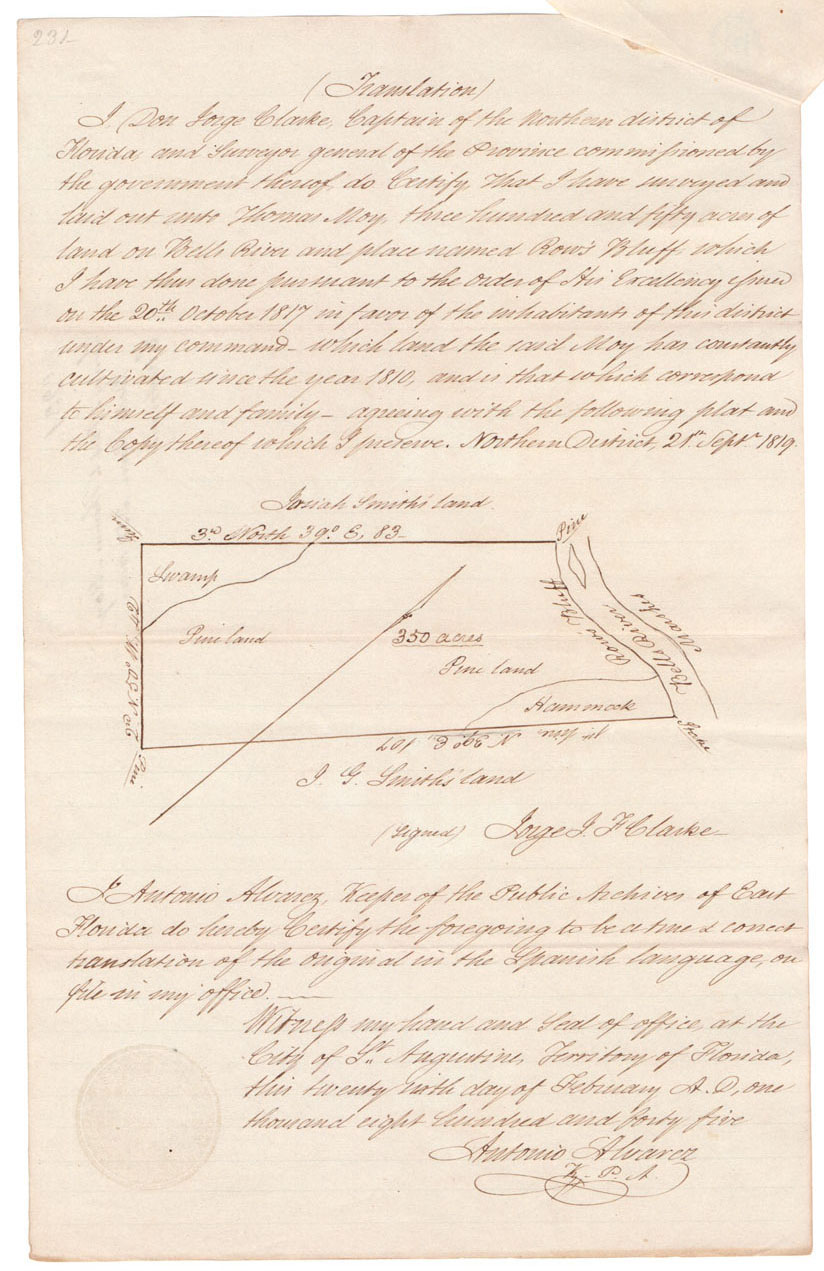 231
(Translation)
I, Don Jorge Clarke, Captain of the Northern district of
Florida, and Surveyor general of the Province commissioned by
the government thereof, do Certify, That I have surveyed and
laid out unto Thomas Moy, three hundred and fifty acres of
land on Bells River and place named Row's Bluff, which
I have thus done pursuant to the order of His Excellency issued
on the 20th October 1817 in favor of the inhabitants of this district
under my command - which land the said Moy has constantly
cultivated since the year 1810, and is that which correspond
to himself and family - agreeing with the following plat and
the Copy thereof which I preserve. Northern District, 21st Septr 1819.
Josiah Smith's land.
3rd North 39° E, 83
Pine
Swamp
Pine land
350 acres
Pine land
Hammock
Rows' Bluff
Bells River
Marshes
Pine
N 39° E, 107
Pine
J. G. Smith's land
(Signed) Jorge J. F Clarke
I, Antonio Alvarez, Keeper of the Public Archives of East
Florida do hereby Certify the foregoing to be a true & correct
translation of the original in the Spanish language, on
file in my office.
Witness my hand and Seal of office, at the
City of St. Augustine, Territory of Florida,
this twenty day of February A.D, one
thousand eight hundred and forty five
Antonio Alvarez
K. P. A.